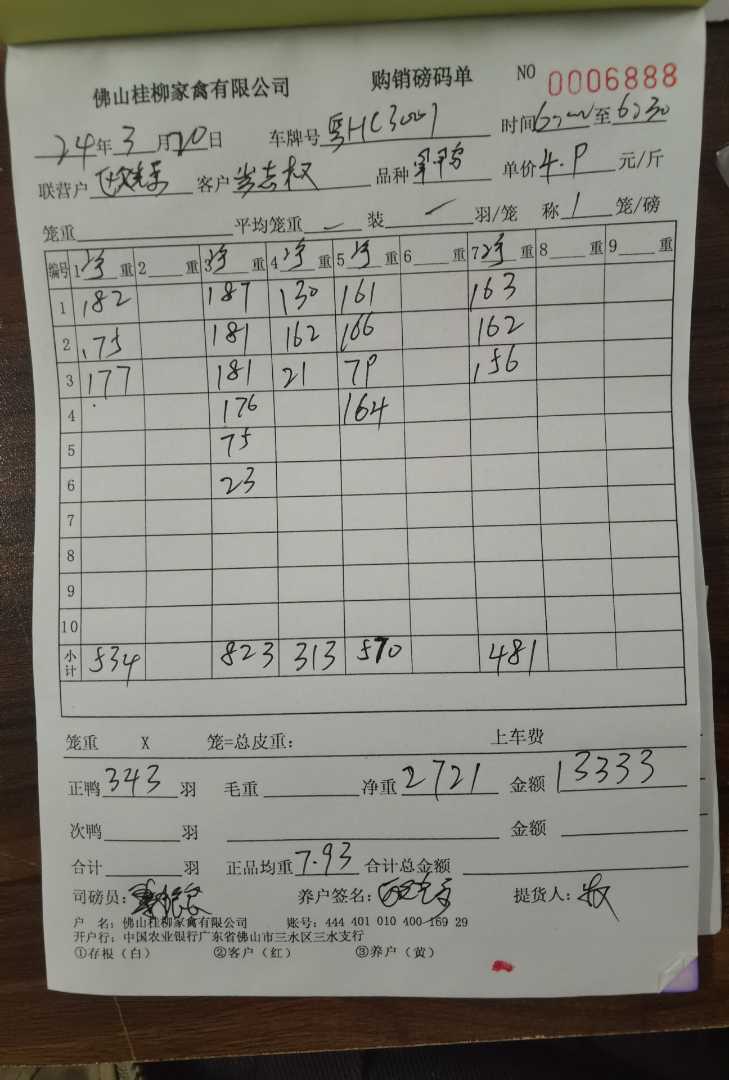 佛山桂柳家禽有限公司 购销磅码单 NO 0006888
24年3月20日 车牌号 粤HC3001 时间 至 6:30
联营户 客户 权 品种 单价4.9元/斤
笼重 平均笼重 装 羽/笼 称1笼/磅
编号 1净重 2 重 3净重 4净重 5净重 6 重 7净重 8 重 9 重
1 182 187 130 161 163
2 175 181 162 166 162
3 177 181 21 79 156
4 176 164
5 75
6 23
7
8
9
10
小计 534 823 313 570 481
笼重 X 笼=总皮重: 上车费
正鸭343羽 毛重 净重2721 金额13333
次鸭 羽 金额
合计 羽 正品均重7.93 合计总金额
司磅员: 养户签名: 提货人: 权
户 名: 佛山桂柳家禽有限公司 账号: 444 401 010 400 169 29
开户行: 中国农业银行广东省佛山市三水区三水支行
①存根(白) ②客户(红) ③养户(黄)